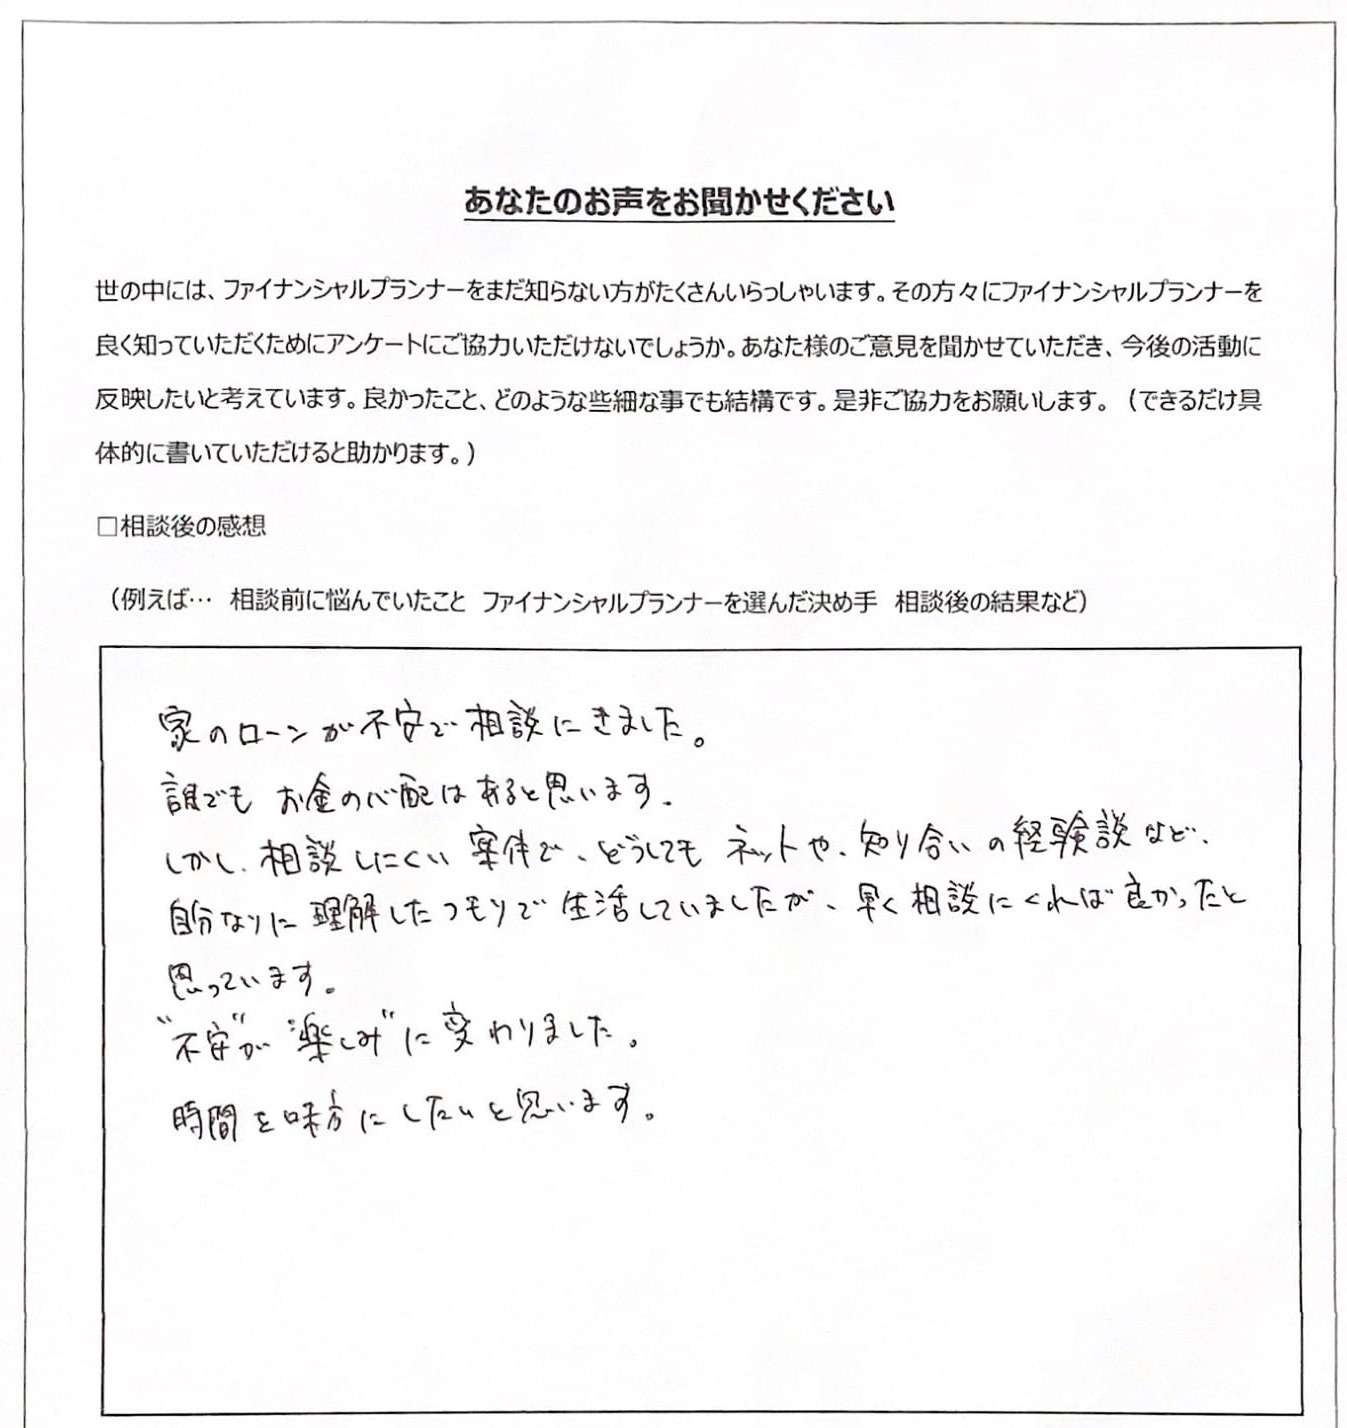 あなたのお声をお聞かせください
世の中には、ファイナンシャルプランナーをまだ知らない方がたくさんいらっしゃいます。その方々にファイナンシャルプランナーを
良く知っていただくためにアンケートにご協力いただけないでしょうか。あなた様のご意見を聞かせていただき、今後の活動に
反映したいと考えています。良かったこと、どのような些細な事でも結構です。是非ご協力をお願いします。（できるだけ具
体的に書いていただけると助かります。）
□相談後の感想
（例えば… 相談前に悩んでいたこと ファイナンシャルプランナーを選んだ決め手 相談後の結果など）
家のローンが不安で相談にきました。
誰でもお金の心配はあると思います。
しかし、相談しにくい案件で、どうしてもネットや、知り合いの経験談など、
自分なりに理解したつもりで生活していましたが、早く相談にくれば良かったと
思っています。
"不安"が"楽しみ"に変わりました。
時間を味方にしたいと思います。